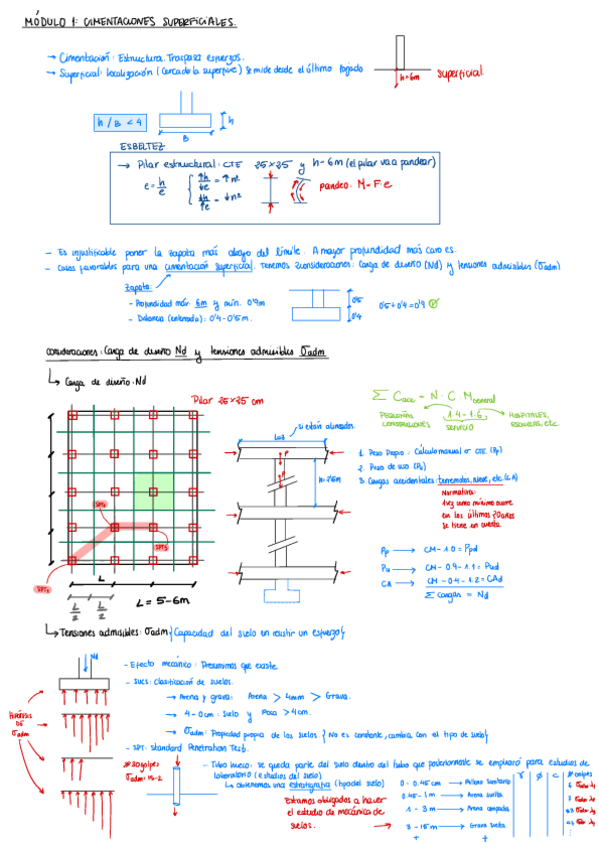 MÓDULO 1: CIMENTACIONES SUPERFICIALES.
→ Cimentación: Estructura. Traspasa esfuerzos.
→ Superficial: localización (cerca de la superficie) se mide desde el último forjado
h=6m superficial
h/B < 4
h
B
ESBELTEZ
→ Pilar estructural: CTE 25x25 y h-6m (el pilar va a pandear)
pandeo. M=F·e
- Es injustificable poner la zapata más abajo del límite. A mayor profundidad más caro es.
- Casos favorables para una cimentación superficial. Tenemos 2 consideraciones: Carga de diseño (Nd) y tensiones admisibles (σadm)
Zapata:
- Profundidad máx. 6m y mín. 0'9m
- Distancia (enterrada): 0'4-0'5m.
0'5
0'4
0'5+0'4=0'9
Consideraciones: Carga de diseño Nd y tensiones admisibles σadm
↳ Carga de diseño: Nd
Pilar 25x25 cm
SPT1
SPT2
SPT3
L
L/2 L/2
L = 5-6m
si están alineados.
Luz
P
P
1. Peso Propio: Cálculo manual or CTE. (Pp)
2. Peso de uso (Pu)
3. Cargas accidentales: terremotos, nieve, etc. (CA)
Normativa:
servicio
1.4-1.6
HOSPITALES,
ESCUELAS, etc.
Pp → CM - 1.0 = Ppd
Pu → CM - 0.9 - 1.1 = Pud
CA → CM - 0.4 - 1.2 = CAd
Σ Cargas = Nd
↳ Tensiones admisibles: σadm {Capacidad del suelo en resistir un esfuerzo}
Nd
HIPÓTESIS
DE
σadm
- Efecto mecánico: Presumimos que existe.
- SUCS: Clasificación de suelos.
→ Arena y grava: Arena > 4mm > Grava.
→ σadm: Propiedad propia de los suelos. {No es constante, cambia con el tipo de suelo}
- SPT: Standard Penetration Test.
- Tubo hueco: se queda parte del suelo dentro del tubo que posteriormente se empleará para estudios de
laboratorio (estudios del suelo)
↳ obtenemos una estratigrafía (tipo del suelo)
Estamos obligados a hacer
el estudio de mecánica de
suelos.
γ ∅ c #golpes
0 - 0.45m → Relleno Sanitario
0.45 - 1m → Arena suelta
1 - 3m → Arena compacta
3 - 15m → Grava suelta